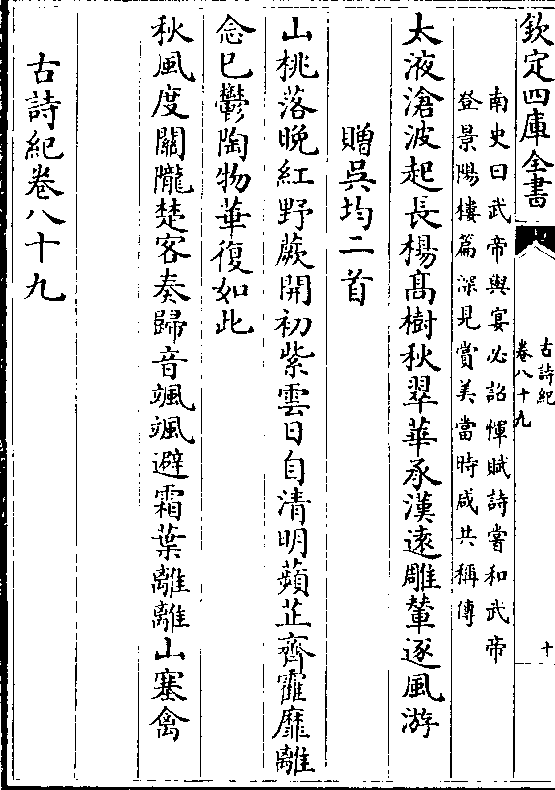 欽定四庫全書
古詩紀
卷八十九
十
南史曰武帝與宴必詔惲賦詩嘗和武帝
登景陽樓篇深見賞美當時咸共稱傳
太液滄波起長楊髙樹秋翠華承漢逺雕輦逐風游
贈吳均二首
山桃落晚紅野蕨開初紫雲日自清明蘋芷齊靃靡離
念已鬱陶物華復如此
秋風度關隴楚客奏歸音颯颯避霜葉離離山塞禽
古詩紀卷八十九